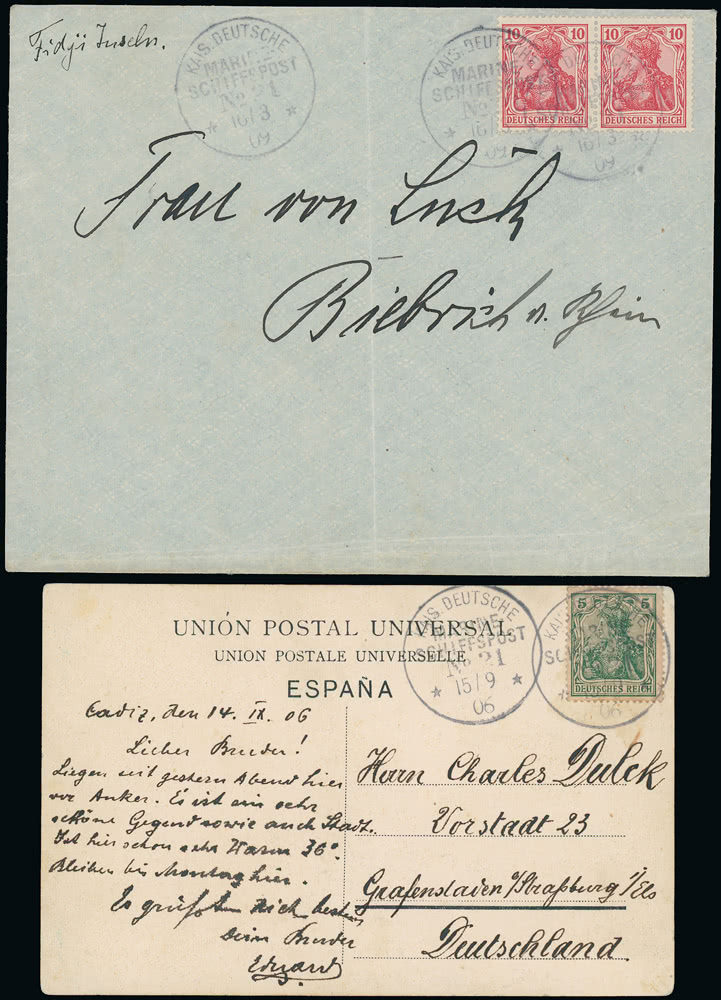 Fidji Inseln.
KAIS. DEUTSCHE
MARINE
SCHIFFSPOST
No 21
16/3
09
KAIS. DEUT
MARINE
SCHIFFSP
No
16/3
09
16/3
09
10 10
DEUTSCHES REICH
10 10
DEUTSCHES REICH
Frau von Lusk
Biebrich a. Rhein
UNIÓN POSTAL UNIVERSAL
UNION POSTALE UNIVERSELLE
ESPAÑA
KAIS. DEUTSCHE
MARINE
SCHIFFSPOST
No 21
15/9
06
KAIS.
SC
06
5 5
DEUTSCHES REICH
Cadiz, den 14. IX. 06
Lieber Bruder!
Liegen seit gestern Abend hier
vor Anker. Es ist ein sehr
schöne Gegend sowie auch Stadt.
Ist hier schon sehr Warm 36°.
Bleiben bis Montag hier.
Es grüßt Dich bestens
Dein Bruder
Eduard
Herrn Charles Dulck
Vorstadt 23
Grafenstaden b/Straßburg i/Els
Deutschland.